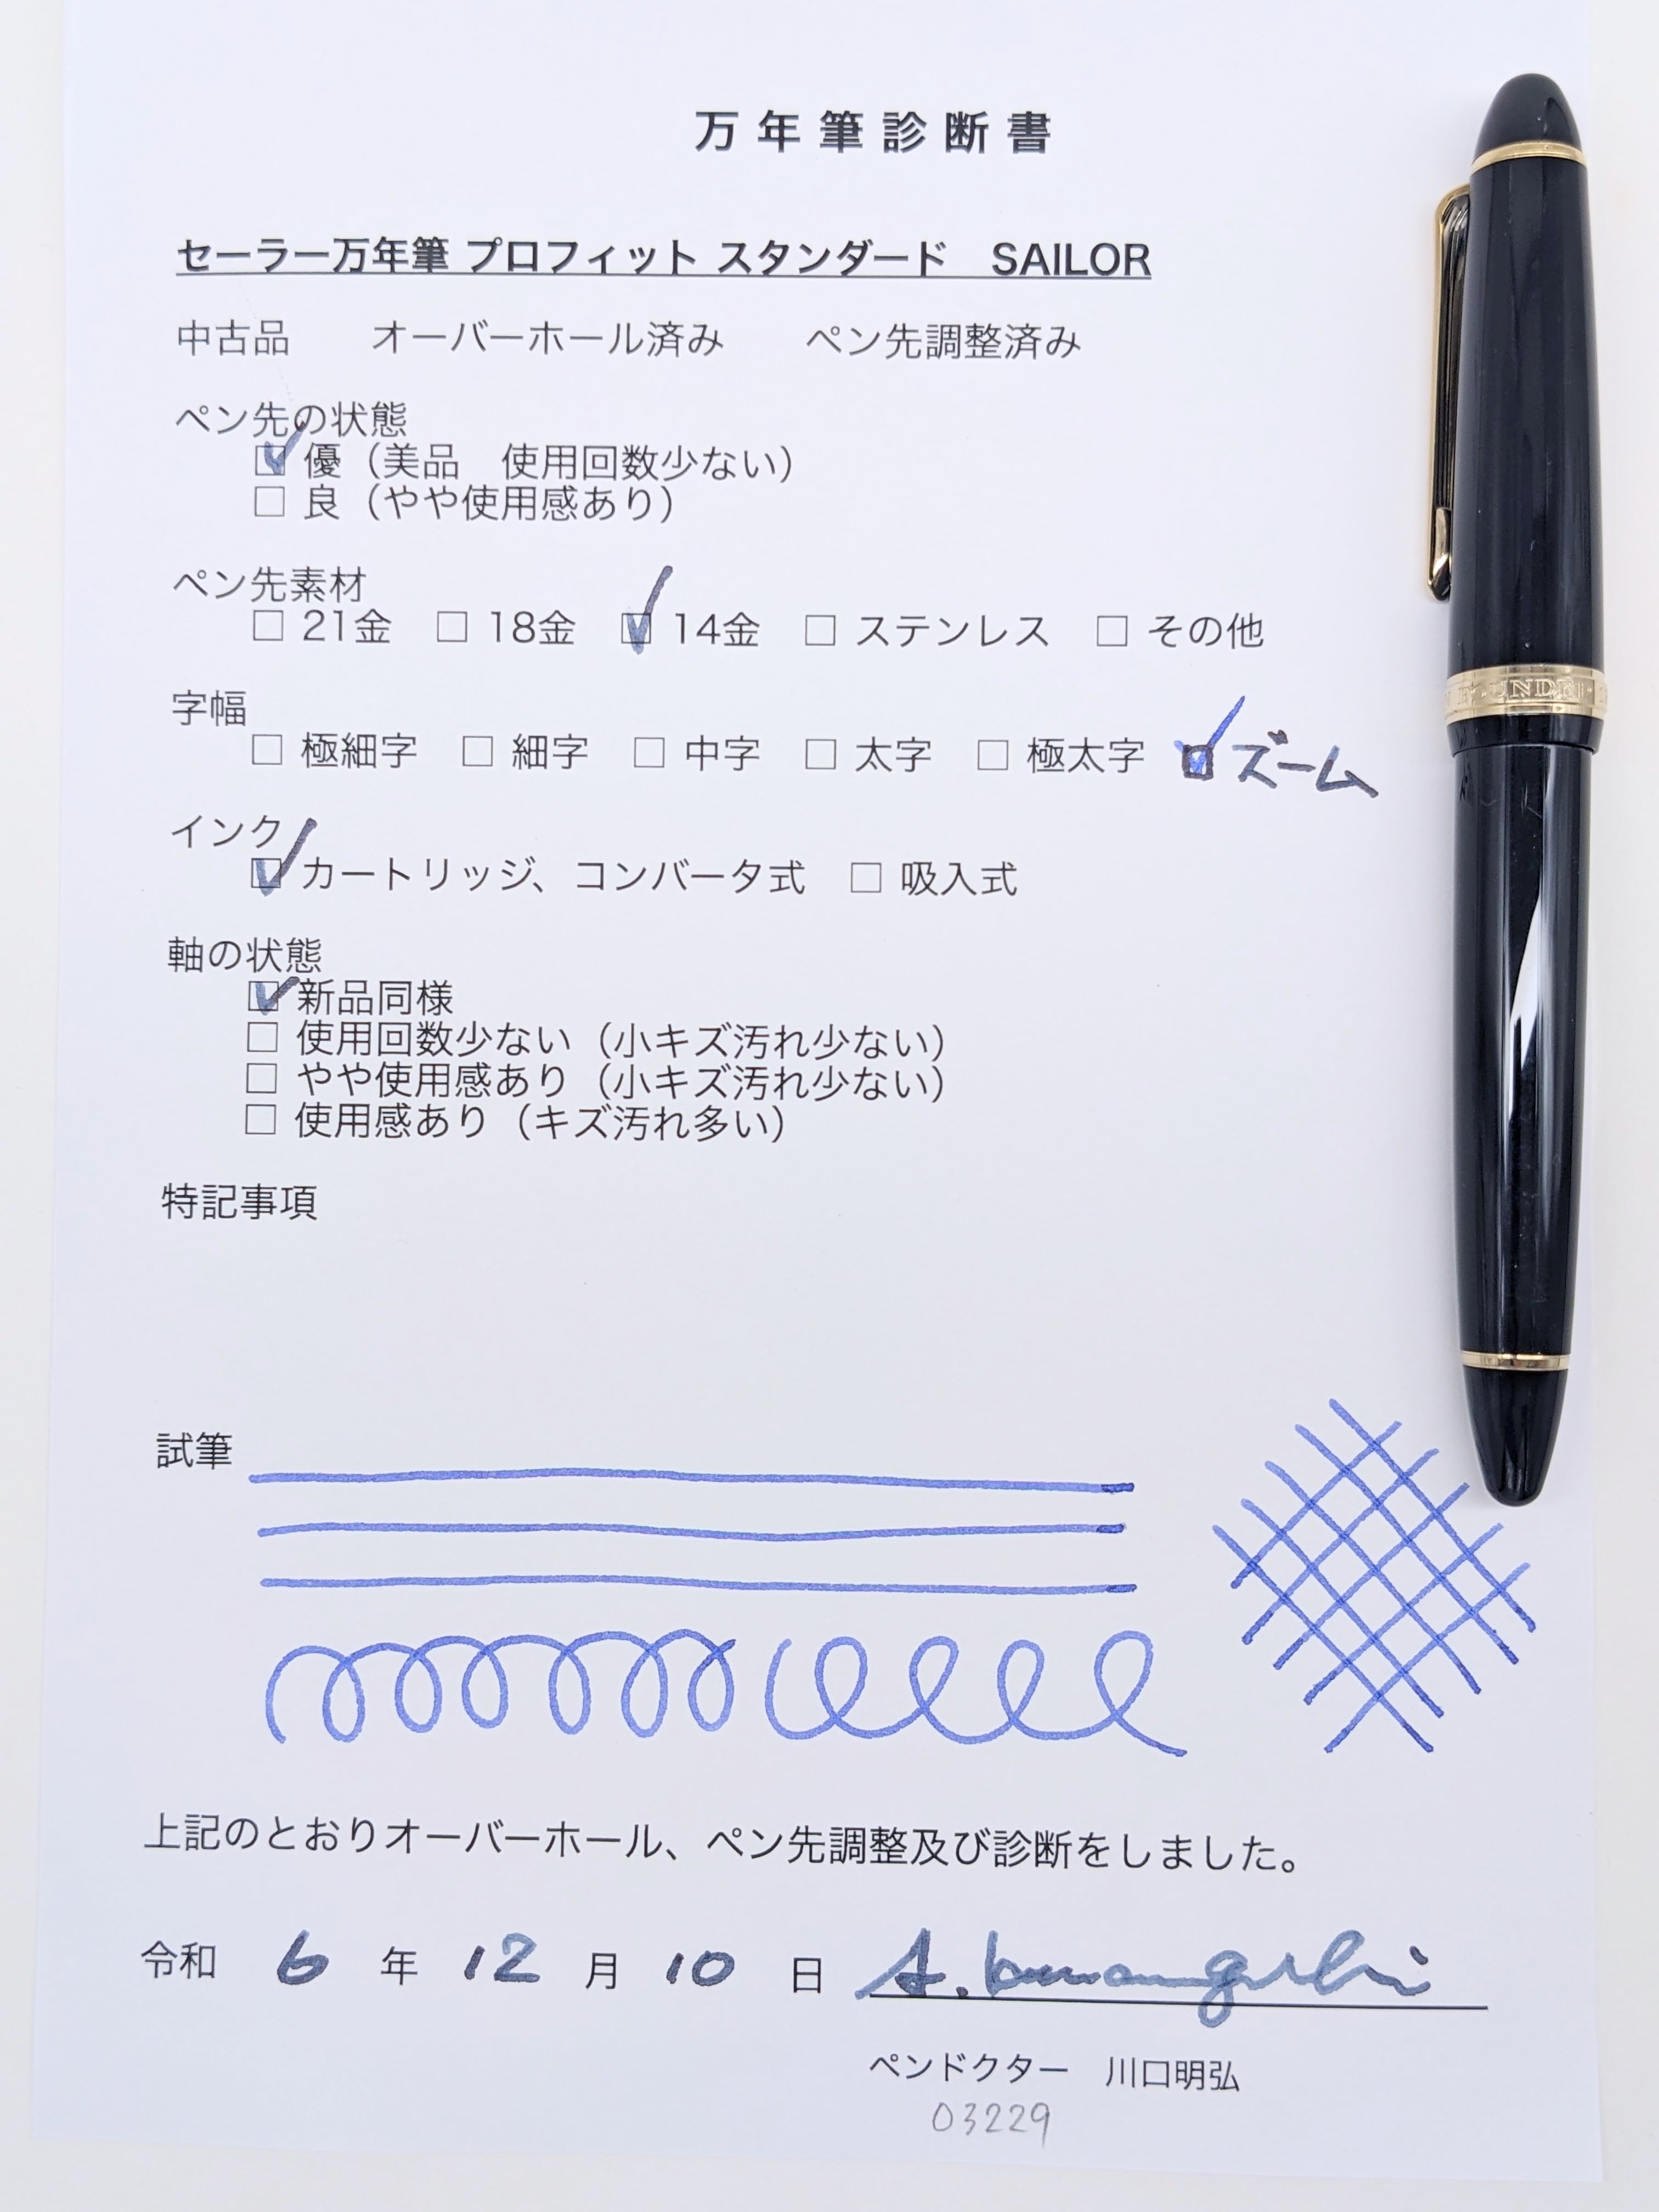 万年筆診断書
セーラー万年筆 プロフィット スタンダード　SAILOR
中古品　　オーバーホール済み　　ペン先調整済み
ペン先の状態
☑ 優（美品　使用回数少ない）
□ 良（やや使用感あり）
ペン先素材
□ 21金　□ 18金　☑ 14金　□ ステンレス　□ その他
字幅
□ 極細字　□ 細字　□ 中字　□ 太字　□ 極太字　☑ ズーム
インク
☑ カートリッジ、コンバータ式　□ 吸入式
軸の状態
☑ 新品同様
□ 使用回数少ない（小キズ汚れ少ない）
□ やや使用感あり（小キズ汚れ少ない）
□ 使用感あり（キズ汚れ多い）
特記事項
試筆
上記のとおりオーバーホール、ペン先調整及び診断をしました。
令和 6 年 12 月 10 日 A. Kawaguchi
ペンドクター　川口明弘
03229